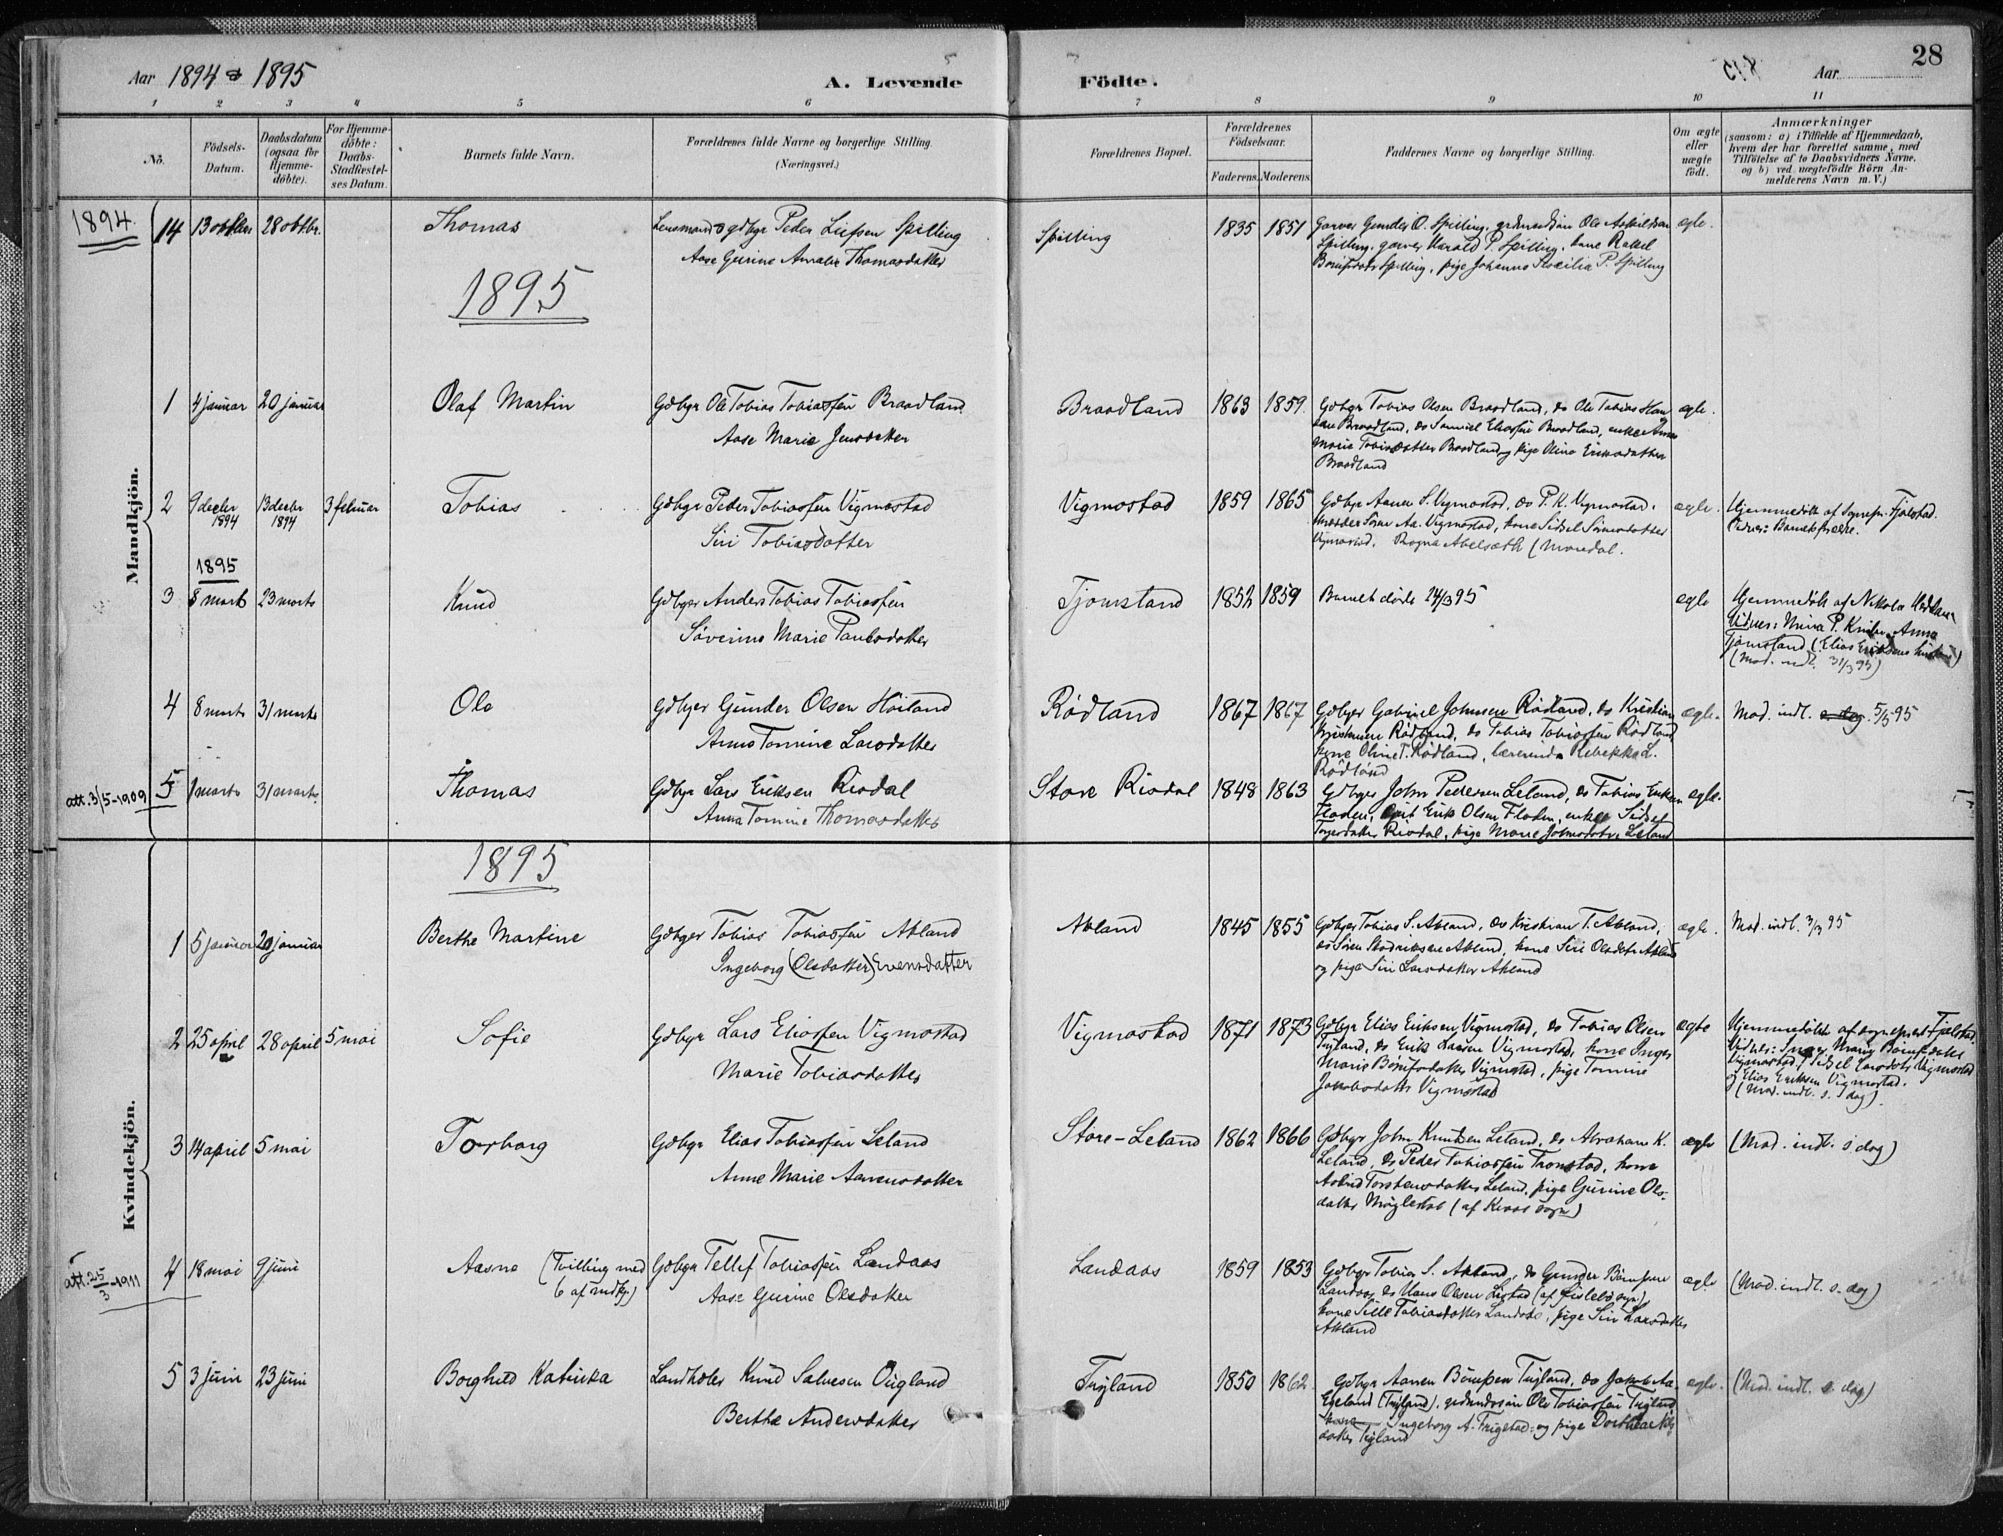 28
Aar 1894 & 1895
A. Levende
Födte.
Aar
1 2 3 4 5 6 7 8 9 10 11
No.
Födsels-
Datum.
Daabsdatum
(ogsaa for
Hjemme-
döbte).
For Hjemme-
döbte:
Daabs-
Stadfæstel-
ses Datum.
Barnets fulde Navn.
Forældrenes fulde Navne og borgerlige Stilling.
(Næringsvei.)
Forældrenes Bopæl.
Forældrenes
Födselsaar.
Faderens.
Moderens.
Faddernes Navne og borgerlige Stilling.
Om ægte
eller
uægte
födt.
Anmærkninger
(saasom: a) i Tilfælde af Hjemmedaab,
hvem der har forrettet samme, med
Tilföielse af to Daabsvidners Navne,
og b) ved uægtefödte Börn An-
melderens Navn m. V.)
Mandkjön.
1894.
14 13 oktbr 28 oktbr. Thomas
Lensmand & gdbgr Peder Leifsen Spilling
Aase Gurine Amalie Thomasdatter
Spilling 1835 1851
Garver Gunder O. Spilling, Ole
Spilling, garver Harald P. Spilling, kone Rakel
Spilling, pige Johanne P. Spilling
ægte.
1895
1 4 januar 20 januar Olaf Martin
Gdbgr Ole Tobias Tobiassen Braadland
Aase Marie Jensdatter
Braadland 1863 1859.
Gdbgr Tobias Olsen Braadland, do Ole Tobias
Braadland, do Samuel Eliassen Braadland, enke Anne
Marie Tobiasdatter Braadland, pige Oline Eriksdatter
Braadland
ægte.
2 9 decbr 1894 13 decbr 1894 3 februar Tobias
Gdbgr Peder Tobiassen Vigmostad
Siri Tobiasdatter
Vigmostad 1859 1865
Gdbgr Aanen S. Vigmostad, do P. K. Vigmostad,
Aa. Vigmostad, kone Sidsel
Vigmostad. Abelsæth
ægte.
Hjemmedöbt af Fjelstad.
1895
3 8 marts 23 marts Knud
Gdbger Anders Tobias Tobiassen
Söverine Marie Paulsdatter
Tjomstand 1852 1859
Barnet döde 24/3 95
ægte
Hjemmedöbt af Nikolai
Vidner: Mina P. Anna
Tjomsland (Elias Eriksens hustru)
(Mod. indl. 31/3 95)
4 8 marts 31 marts Ole
Gdbger Gunder Olsen Höiland
Anne Tomine Larsdatter
Rödland 1867 1867
Gdbger Gabriel Johnsen Rödland, do Kristian
Rödland, do Tobias Tobiassen Rödland,
kone Oline T. Rödland, lærerinde Rebekka L.
Rödland
ægte.
Mod. indl. 5/5 95
att. 3/5-1909
5 1 marts 31 marts. Thomas
Gdbgr Lars Eriksen Risdal
Anna Tomine Thomasdatter
Store Risdal 1848 1863
Gdbger John Pedersen Leland, do Tobias Eriksen
Floden, Erik Olsen Floden, enke Sidsel
Risdal, pige Marie Leland
ægte.
Kvindekjön.
1895
1 5 januar 20 januar Berthe Martine
Gdbger Tobias Tobiassen Akland
Ingeborg (Olsdatter) Evensdatter
Akland 1845 1855
Gdbger Tobias S. Akland, do Kristian T. Akland,
do Sören Akland, kone Siri Olsdatter Akland
og pige Siri Larsdatter Akland
ægte.
Mod. indl. 3/3 95
2 25 april 28 april 5 mai Sofie
Gdbgr Lars Eliassen Vigmostad
Marie Tobiasdatter
Vigmostad 1871 1873
Gdbgr Elias Eriksen Vigmostad, do Tobias Olsen
Tigland, do Erik Larsen Vigmostad, kone Inger
Marie Vigmostad, pige Tomine
Jakobsdatter Vigmostad
ægte
Hjemmedöbt af sogneprest Fjelstad
Vidner: Inger Marie
Vigmostad, Sidsel Larsdatter Vigmostad
og Elias Eriksen Vigmostad.
(Mod. indl. s. dag).
3 14 april 5 mai Torborg
Gdbgr Elias Tobiassen Leland
Anne Marie Aanensdatter
Store-Leland 1862 1866
Gdbgr John Knutsen Leland, do Abraham K.
Leland, do Peder Tobiassen Tronstad, kone
Astrid Torstensdatter Leland, pige Gurine Ols-
datter Möglestøl (af Kvaas sogn)
ægte
(Mod. indl. s. dag)
att. 25/3-1911
4 18 mai 9 juni Aasne (Tvilling med
6 af mdkjn)
Gdbgr Tellef Tobiassen Landaas
Aase Gurine Olsdatter
Landaas 1859 1853
Gdbgr Tobias S. Akland, do Gunder
Landaas, do Hans Olsen
kone Sille Tobiasdatter Landaas, pige Siri Larsdatter
Akland
ægte
(Mod. indl. s. dag)
5 3 juni 23 juni Borghild Katinka
Landhdler Knud Salvesen Øigland
Berthe Andersdatter
Trigland 1850 1862.
Gdbgr Aanen Trigland, do Jakob Aa.
Egeland (Trigland), Ole Tobiassen Trigland
Ingeborg A. Frigstad og pige Dorthea
datter Trigland
ægte.
(Mod. indl. s. dag)